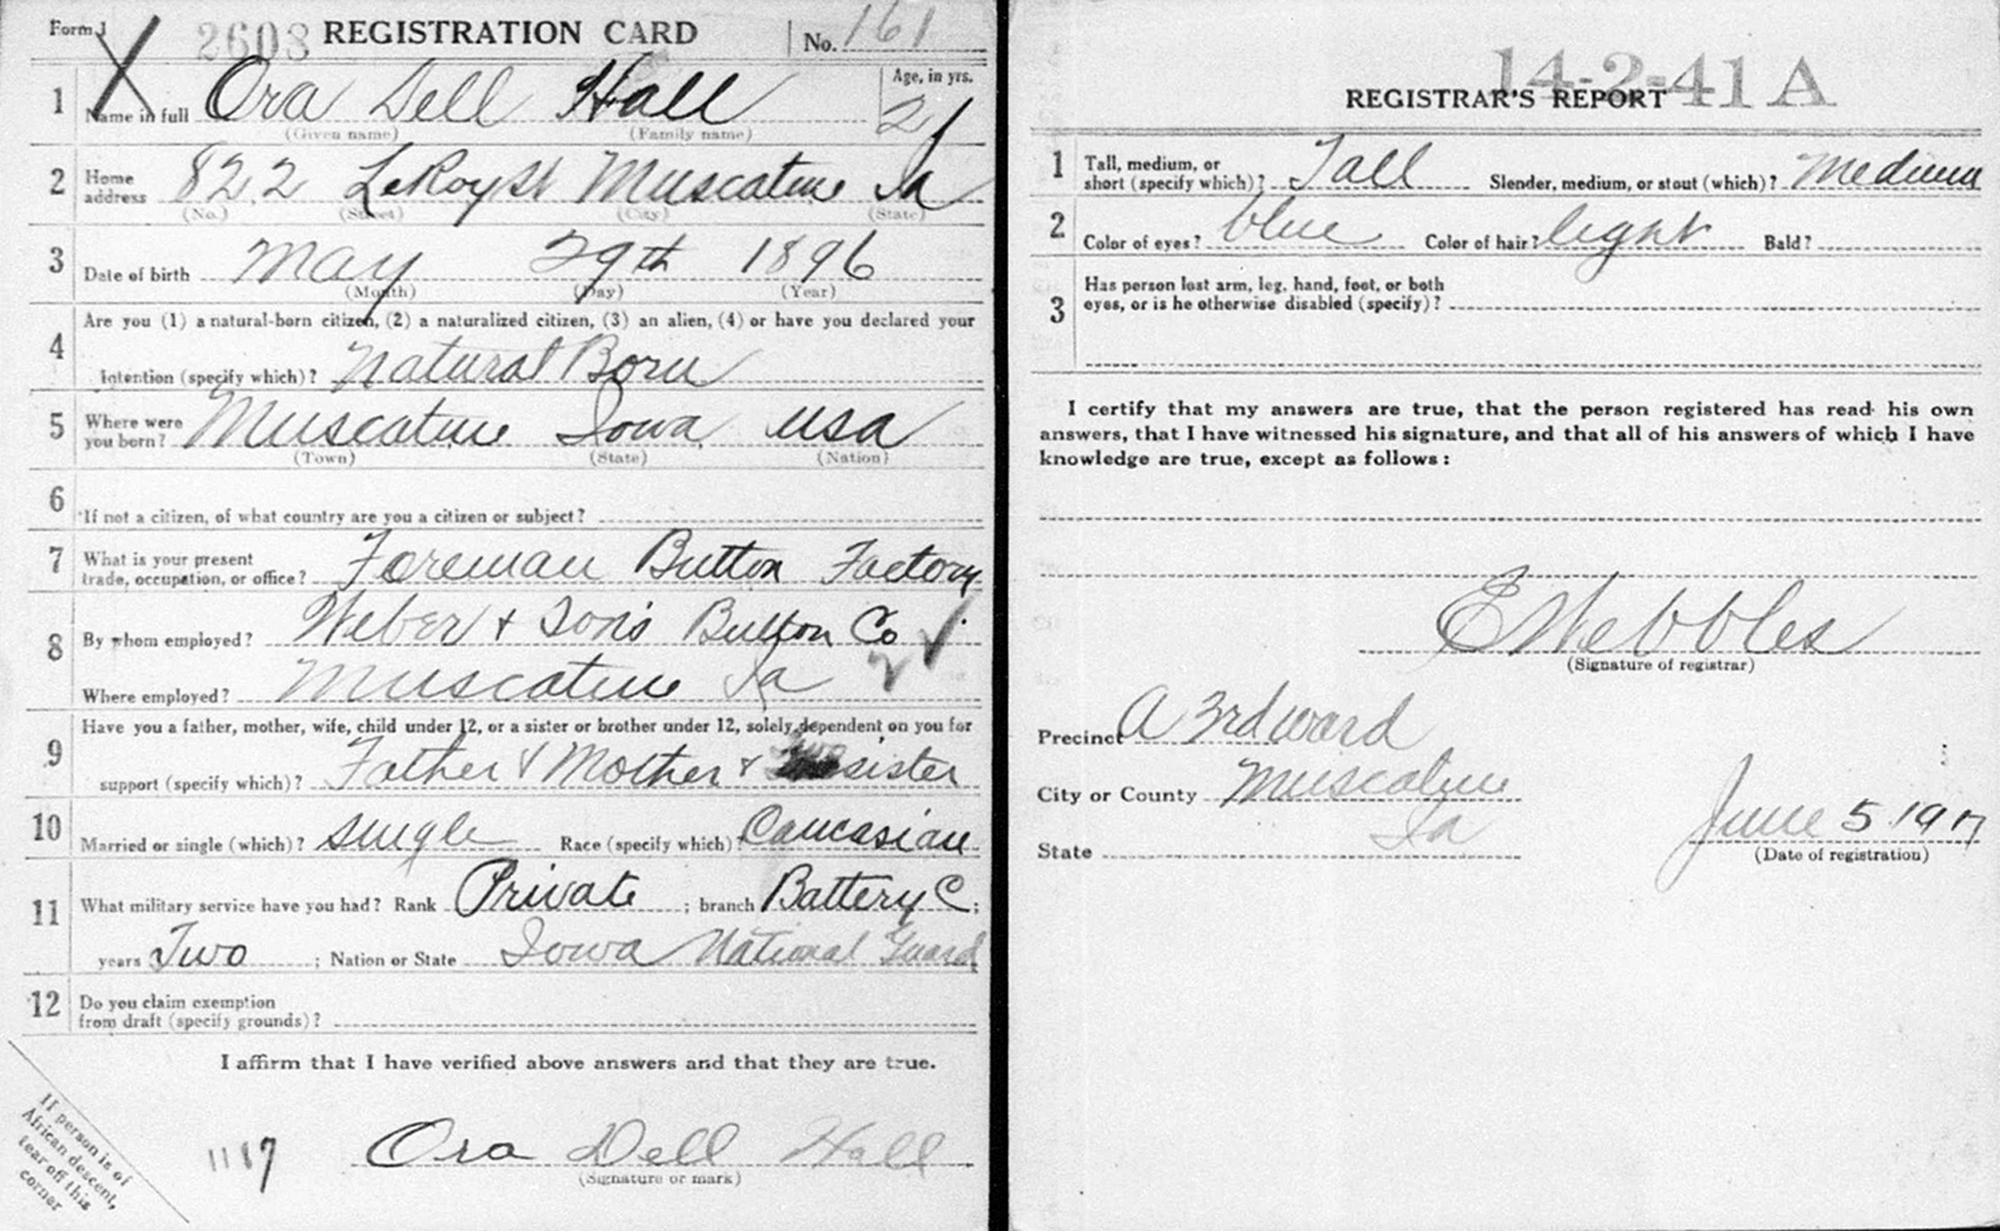 Form 1 2608 REGISTRATION CARD No. 161
1 Name in full Ora Dell Hall Age, in yrs. 21
(Given name) (Family name)
2 Home address 822 LeRoy St Muscatine Ia
(No.) (Street) (City) (State)
3 Date of birth May 29th 1896
(Month) (Day) (Year)
4 Are you (1) a natural-born citizen, (2) a naturalized citizen, (3) an alien, (4) or have you declared your
intention (specify which)? Natural Born
5 Where were you born? Muscatine Iowa USA
(Town) (State) (Nation)
6 If not a citizen, of what country are you a citizen or subject?
7 What is your present trade, occupation, or office? Foreman Button Factory
8 By whom employed? Weber + Son's Button Co
Where employed? Muscatine Ia
9 Have you a father, mother, wife, child under 12, or a sister or brother under 12, solely dependent on you for
support (specify which)? Father & Mother & sister
10 Married or single (which)? single Race (specify which)? Caucasian
11 What military service have you had? Rank Private ; branch Battery C ;
years Two ; Nation or State Iowa National Guard
12 Do you claim exemption
from draft (specify grounds)?
I affirm that I have verified above answers and that they are true.
Ora Dell Hall
(Signature or mark)
If person is of
African descent,
tear off this
corner
14-2-41 A
REGISTRAR'S REPORT
1 Tall, medium, or short (specify which)? Tall Slender, medium, or stout (which)? Medium
2 Color of eyes? blue Color of hair? light Bald?
3 Has person lost arm, leg, hand, foot, or both
eyes, or is he otherwise disabled (specify)?
I certify that my answers are true, that the person registered has read his own
answers, that I have witnessed his signature, and that all of his answers of which I have
knowledge are true, except as follows:
(Signature of registrar)
Precinct A 3rd ward
City or County Muscatine
State Ia
June 5 1917
(Date of registration)